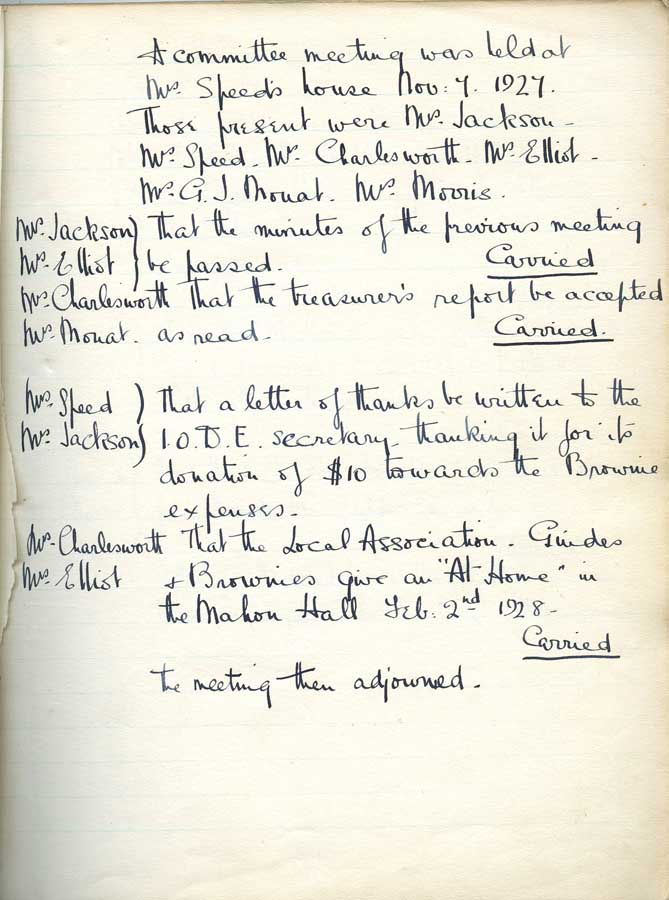 A committee meeting was held at
Mrs. Speed's house Nov: 7. 1927.
Those present were Mrs. Jackson -
Mrs. Speed - Mrs. Charlesworth - Mrs. Elliot -
Mrs. G. J. Mouat. Mrs. Morris.
Mrs. Jackson ) That the minutes of the previous meeting
Mrs. Elliot ) be passed. Carried
Mrs. Charlesworth That the treasurer's report be accepted
Mrs. Mouat. as read. Carried.
Mrs. Speed ) That a letter of thanks be written to the
Mrs. Jackson ) I.O.D.E. secretary thanking it for its
donation of $10 towards the Brownie
expenses -
Mrs. Charlesworth That the Local Association - Guides
Mrs. Elliot + Brownies give an "At Home" in
the Mahon Hall Feb: 2nd 1928 -
Carried
The meeting then adjourned -